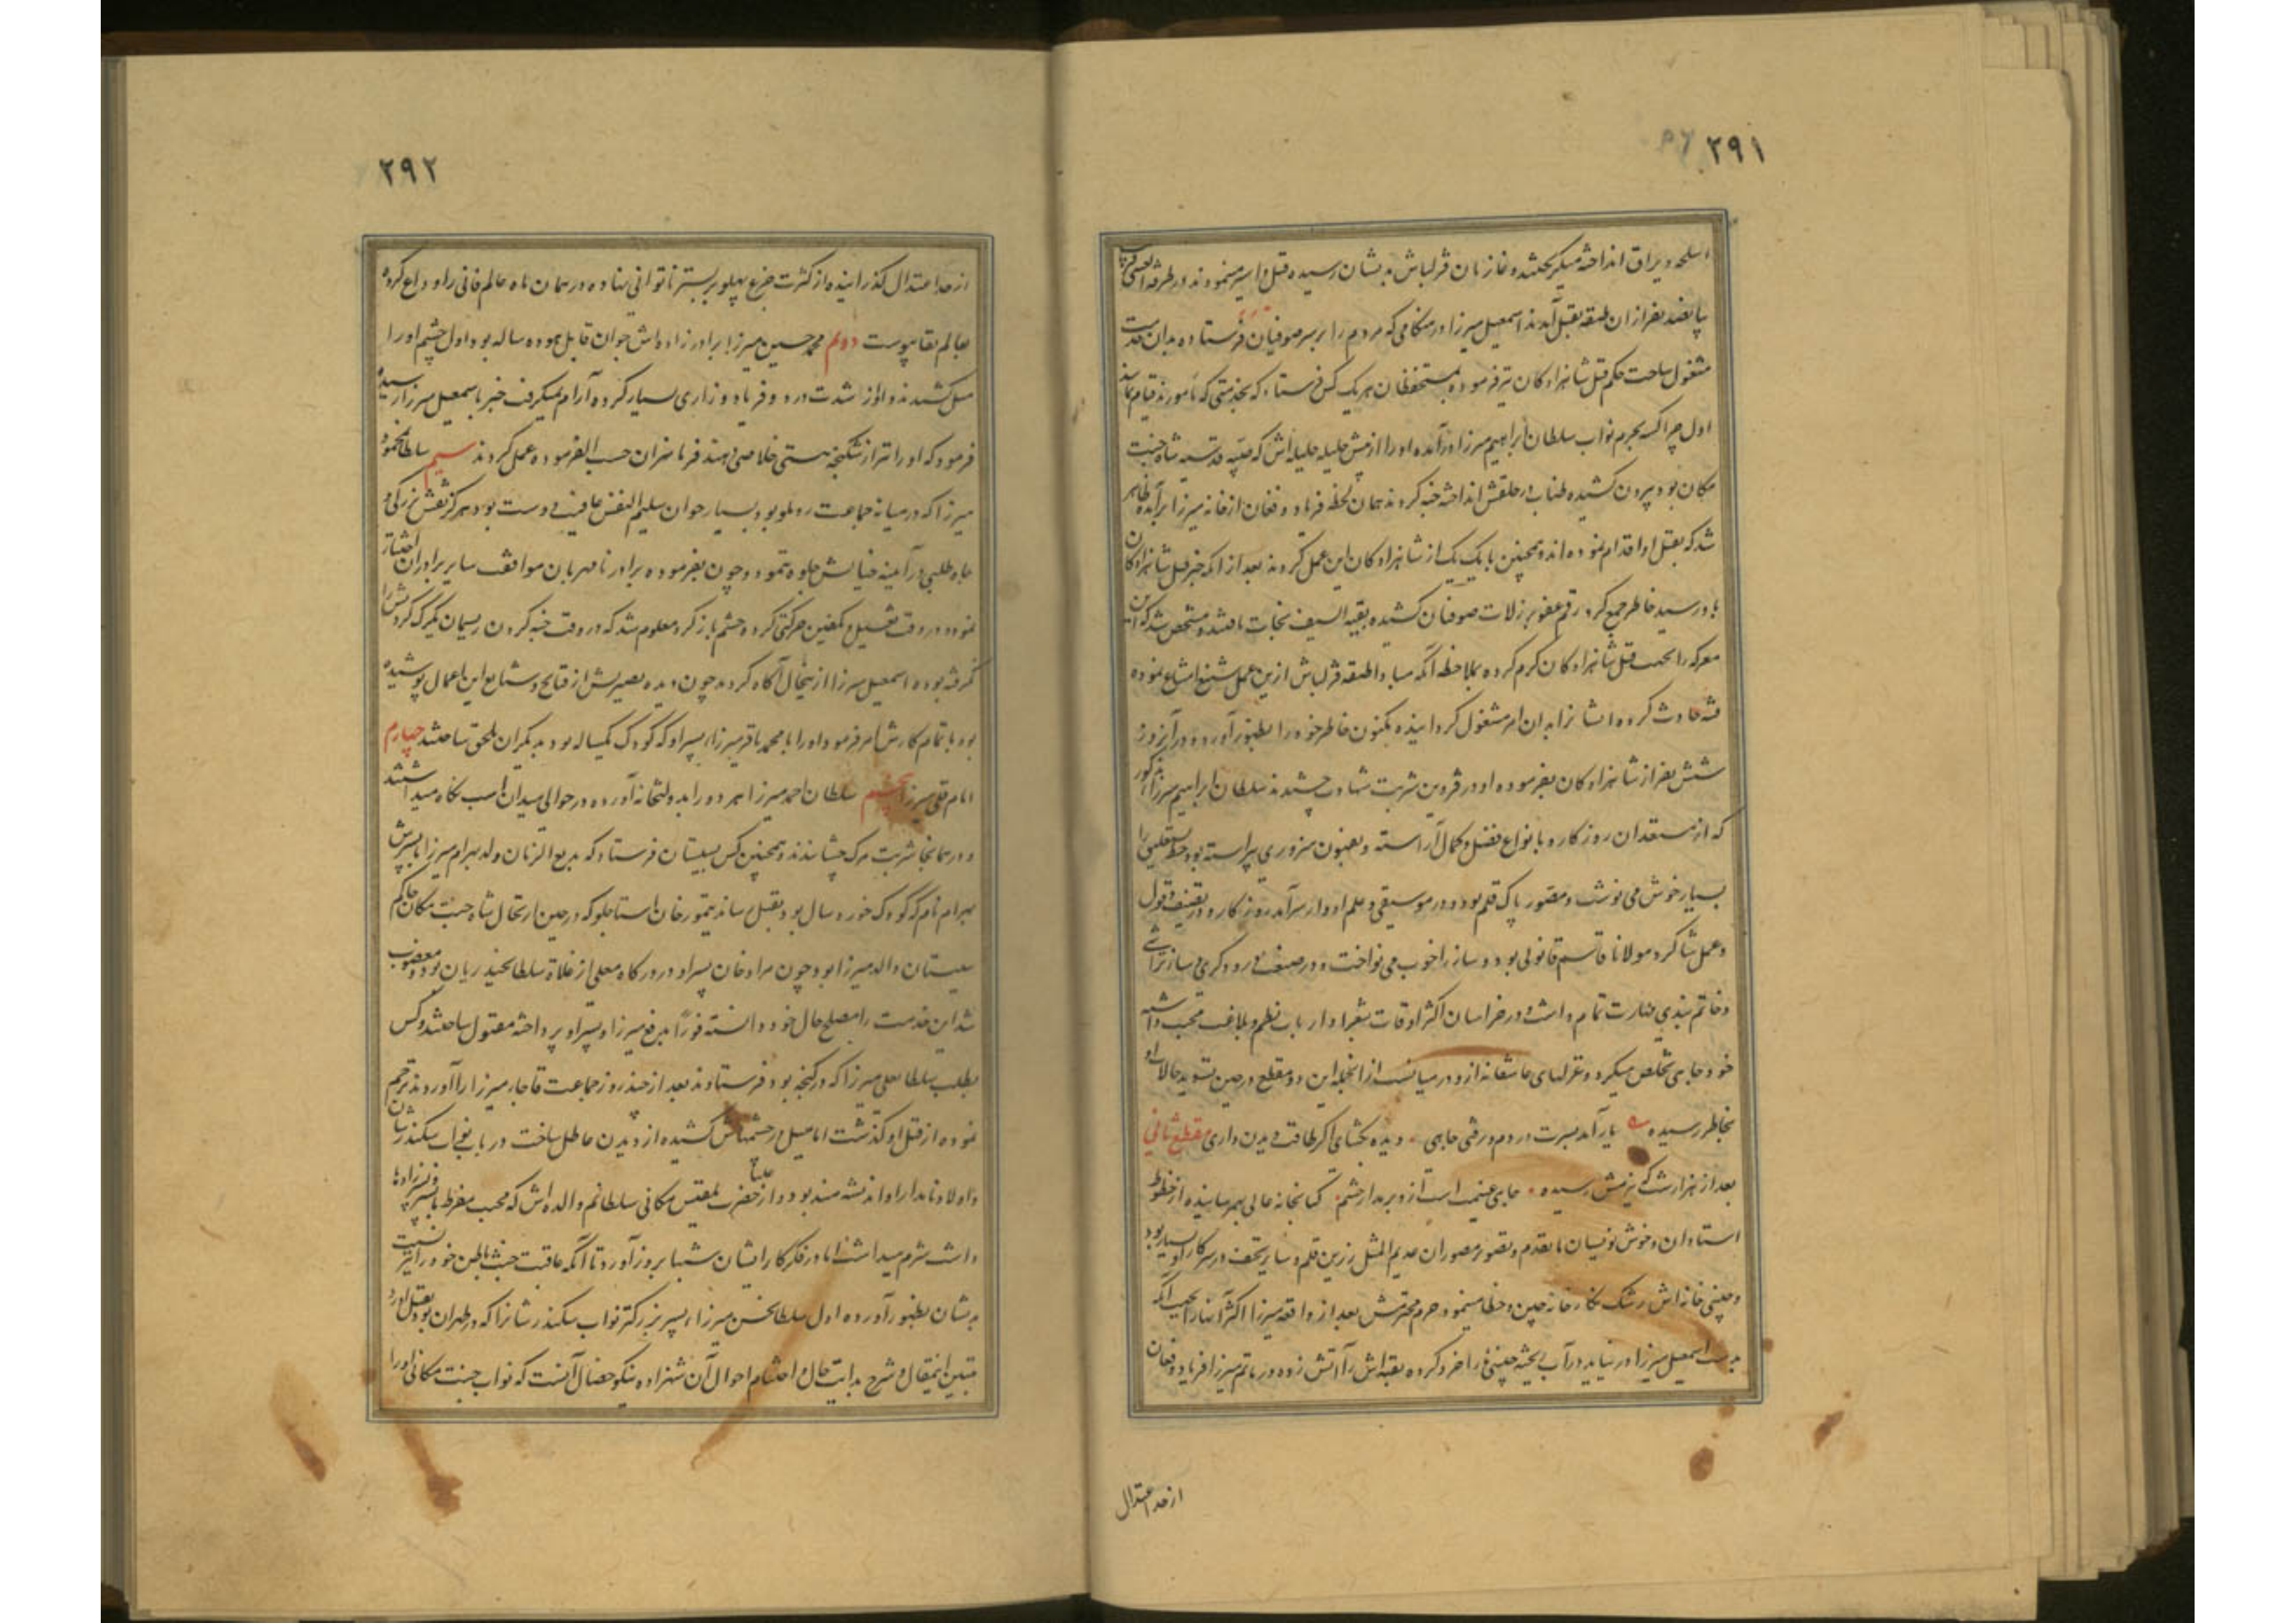 ۲۹۱
اسلحه و یراق انداخته میگریختند و غازیان قزلباش بدیشان رسیده قتل و اسیر مینمودند در طرفة العینی قریب
پانصد نفر از ان طبقه بقتل آمدند اسمعیل میرزا در هنگامی که مردم را بر سر صوفیان فرستاده بدان خدمت
مشغول ساخت حکم قتل شاهزادکان نیز فرموده بمستحفظان هر یک کس فرستاد که بخدمتی که مامورند قیام نمایند
اول چراکسه بحرم نواب سلطان ابراهیم میرزا درآمده او را از پیش حلیله جلیله اش که صبیه قدسیه شاه جنت
مکان بود بیرون کشیده طناب در حلقش انداخته خبه کردند همان لحظه فریاد و فغان از خانه میرزا برآمده ظاهر
شد که بقتل او اقدام نموده اند و همچنین با یک یک از شاهزادکان این عمل کردند بعد از انکه خبر قتل شاهزادکان
باو رسید خاطر جمع کرد رقم عفو بر زلات صوفیان کشیده بقیة السیف نجات یافتند و مشخص شد که این
معرکه را بجهت قتل شاهزادکان کرم کرده بملاحظه آنکه مبادا طبقه قزلباش ازین عمل شنیع امتناع نموده
فتنه حادث کردد ایشانرا بدان امر مشغول کردانیده مکنون خاطر خود را بظهور آورد و در آنروز
شش نفر از شاهزادکان بفرموده او در قزوین شربت شهادت چشیدند سلطان ابراهیم میرزا مذکور
که از مستعدان روزکار و بانواع فضل و کمال آراسته و بفنون هنروری پیراسته بود خط نستعلیق را
بسیار خوش می نوشت و مصور پاک قلم بود و در موسیقی و علم ادوار سرآمد روزکار و در تصنیف و قول
و عمل شاکرد مولانا قاسم قانونی بود و ساز را خوب می نواخت و در صنعت درودکری و سازتراشی
و خاتم بندی مهارت تمام داشت و در خراسان اکثر اوقات بشعرا و ارباب نظم و بلاغت صحبت داشته
خود جاهی تخلص میکرد و غزلهای عاشقانه ازو در میانست از انجمله این دو مقطع در حین تسوید حالات او
بخاطر رسیده یار آمد بسرت در دم رفتن جاهی دیده بکشای اکر طاقت دیدن داری مقطع ثانی
بعد از هزار شب که ببزمش رسیده جاهی غنیمت است ازو برمدار چشم کتابخانه عالی بهم رسانیده از خطوط
استادان و خوش نویسان ما تقدم و تصویر مصوران عدیم المثل زرین قلم و سایر تحف در سرکار او بسیار بود
و چینی خانه اش رشک نکارخانه چین و خطا مینمود حرم محترمش بعد از واقعه میرزا اکثر آنها را بجهت آنکه
بدست اسمعیل میرزا در نیاید در آب ریخته چینی ها را خرد کرده بقیه اش را آتش زده در ماتم میرزا فریاد و فغان
از حد اعتدال
۲۹۲
از حد اعتدال کذرانیده از کثرت جزع پهلو بر بستر ناتوانی نهاده در همان ماه عالم فانی را وداع کرده
بعالم بقا پیوست دوم محمد حسین میرزا برادرزاده اش جوان قابل هجده ساله بود اول چشم او را
میل کشیدند و او از شدت درد و فریاد و زاری بسیار کرده آرام نمیکرفت خبر باسمعیل میرزا رسیده
فرمود که او را نیز از شکنجه هستی خلاصی دهند فرمانبران حسب الفرموده عمل کردند سیم سلطان محمود
میرزا که در میانه جماعت روملو بود بسیار جوان سلیم النفس عافیت دوست بود هرکز نقش بزرکی و
جاه طلبی در آینه خیالش جلوه ننمود و چون بفرموده برادر نامهربان موافقت سایر برادران اختیار
نمود در وقت تغسیل و تکفین حرکتی کرده چشم باز کرد معلوم شد که در وقت خبه کردن ریسمان یکرک کردنش را
نکرفته بوده اسمعیل میرزا را ازینحال آکاه کردند چون دیده بصیرتش از قبایح و شنایع این اعمال پوشیده
بود باتمام کارش امر فرمود و او را با محمد باقر میرزا پسر او که کودک یکساله بود بدیکران ملحق ساختند چهارم
امام قلی میرزا پنجم سلطان احمد میرزا هر دو را بدولتخانه آورده در حوالی میدان اسب نکاه میداشتند
و در همانجا شربت مرک چشانیدند و همچنین کس بسیستان فرستاد که بدیع الزمان ولد بهرام میرزا با پسرش
بهرام نام که کودک خورد سال بود بقتل رساند تیمور خان استاجلو که در حین ارتحال شاه جنت مکان حاکم
سیستان و للـه میرزا بود چون مراد خان پسر او در درکاه معلی از غلاة سلطان حیدریان بود و مغضوب
شد این خدمت را مصلح حال خود دانسته فوراً بدفع میرزا و پسر او پرداخته مقتول ساختند و کس
بطلب سلطانعلی میرزا که در کنجه بود فرستادند بعد از چند روز جماعت قاجار میرزا را آوردند ترحم
نموده از قتل او کذشت اما میل در چشمهاش کشیده از دیدن عاطل ساخت در باب نواب سکندر شان
و اولاد نامدار او اندیشه مند بود و از حضرت علیا بلقیس مکانی سلطانم والده اش که محبت مفرط با پسر و پسرزادها
داشت شرم میداشت اما در فکر کار ایشان شبها بروز آورد تا آنکه عاقبت خبث باطن خود را نسبت
بدیشان بظهور آورده اول سلطان حسن میرزا پسر بزرکتر نواب سکندر شانرا که در طهران بود بقتل آورد
تبیین اینمقال و شرح بدایت حال و اختتام احوال آن شهزاده نیکو خصال آنست که نواب جنت مکانی او را